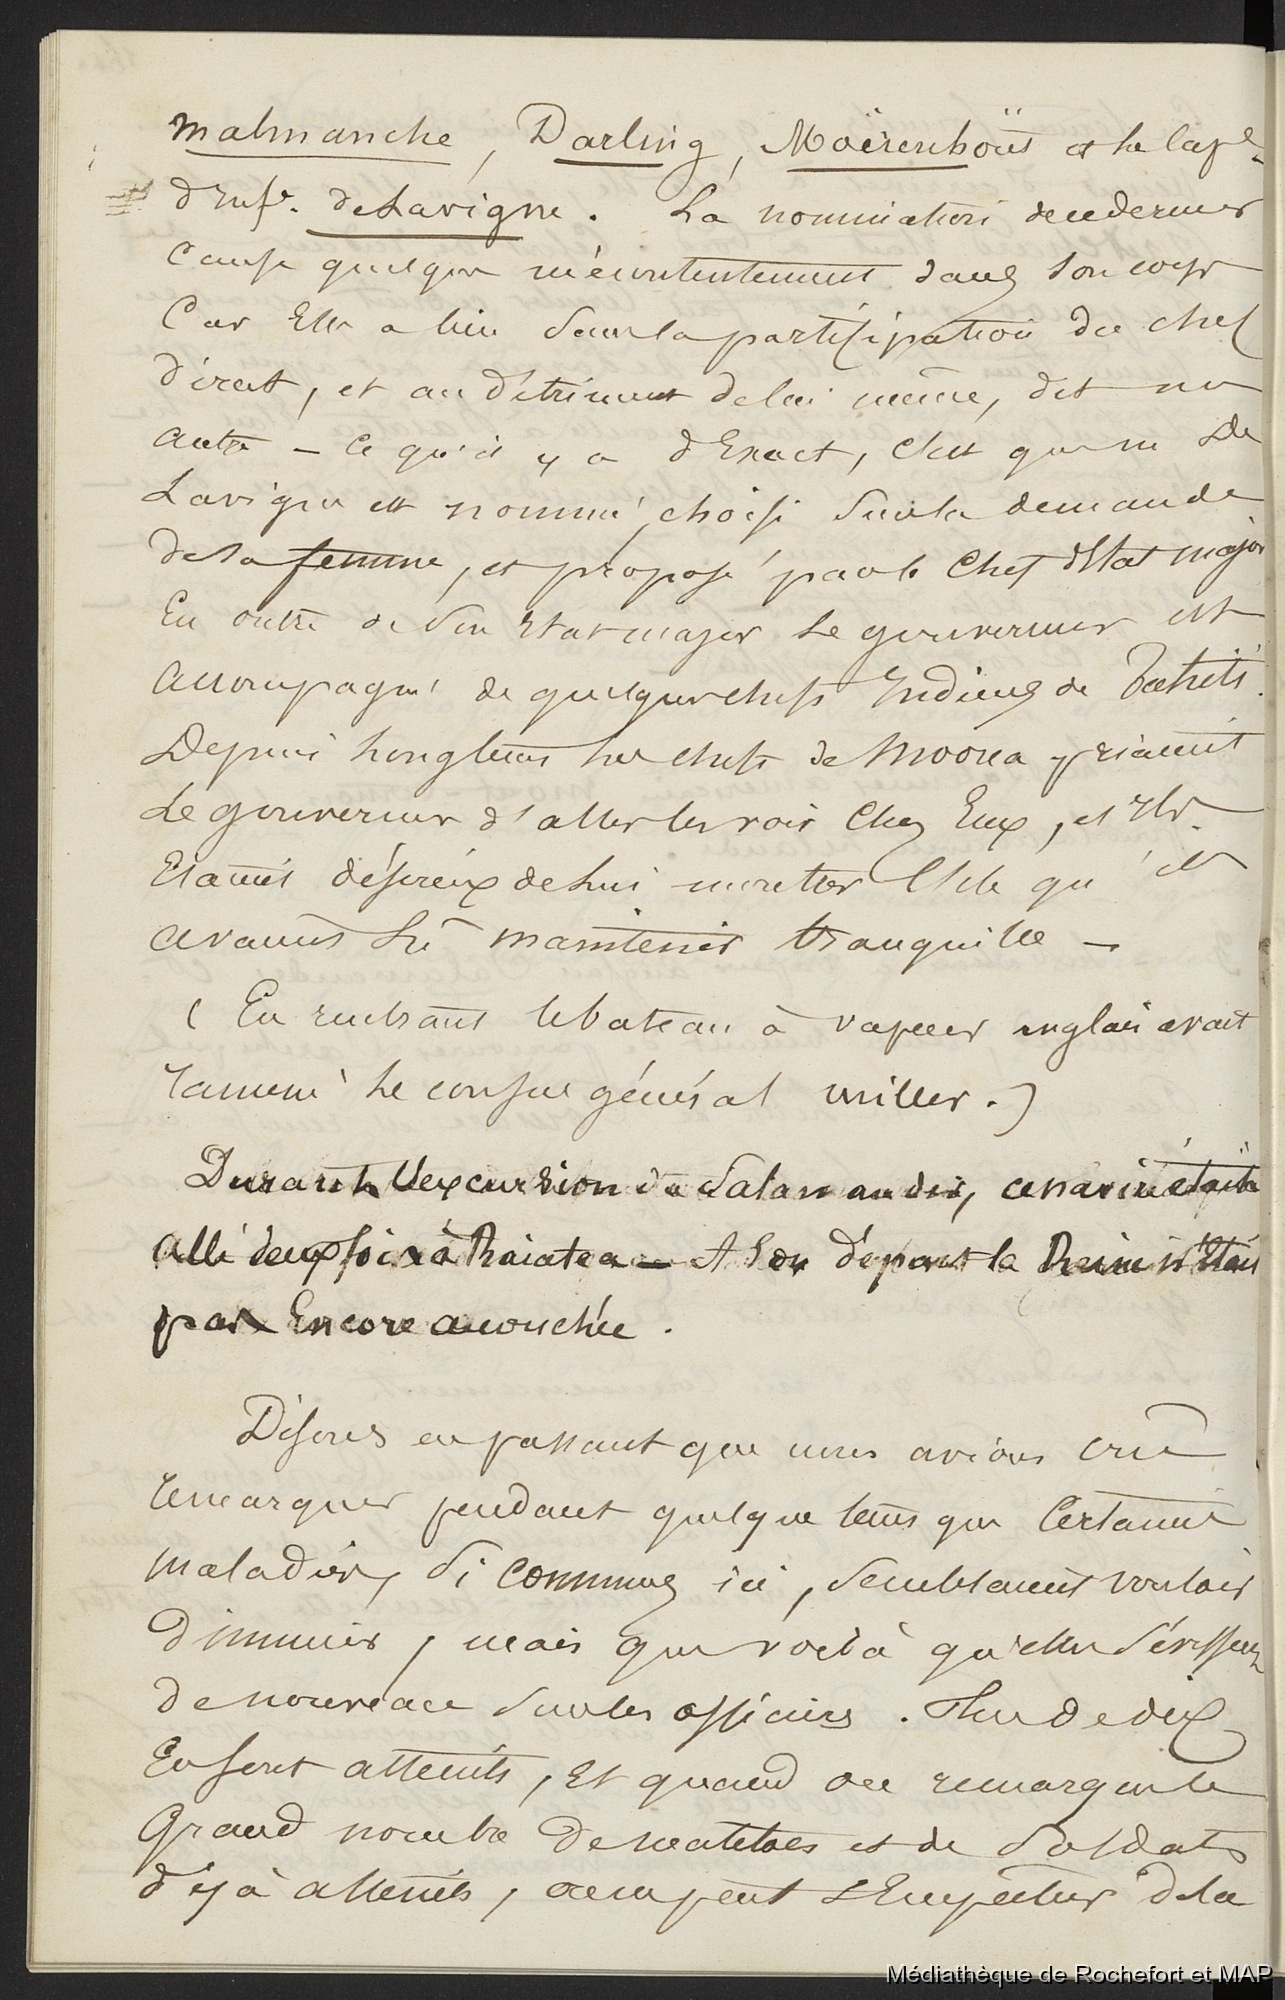 Malmanche, Darling, Moërenhoüt et le Cape
d'Infie. de Lavigne. La nomination de ce dernier
cause quelque mécontentement dans son corps
Car Elle a lieu sans la participation du chef
direct, et au détriment de lui même, dit un
autre - Ce qu'il y a d'Exact, c'est que m De
Lavigne est nommé, choisi sur la demande
de sa femme, et proposé par le Chef d'Etat major
En outre de son Etat major Le gouverneur est
accompagné de quelques chefs Indiens de Tahiti.
Depuis longtems les chefs de Moorea priaient
Le gouverneur d'aller les voir Chez Eux, et Ils
Etaient désireux de lui montrer l'Ile qu'ils
avaient Sû maintenir tranquille -
( En rentrant le bateau à vapeur anglais avait
ramené le consul général Miller.)
Durant l'excursion du Salamandre, ce navire était
allé deux fois à Raiatea - A son départ la Reine n'Etait
pas Encore accouchée.
Disons en passant que nous avions crû
remarquer pendant quelque tems que Certaines
maladies, Si Communes ici, semblaient vouloir
diminuer, mais que voilà qu'elles sévissent
de nouveau sur les officiers. Plus de dix
En sont atteints, Et quand on remarque le
Grand nombre de matelots et de Soldats
déjà atteints, on ne peut s'Empêcher de la
Médiathèque de Rochefort et MAP